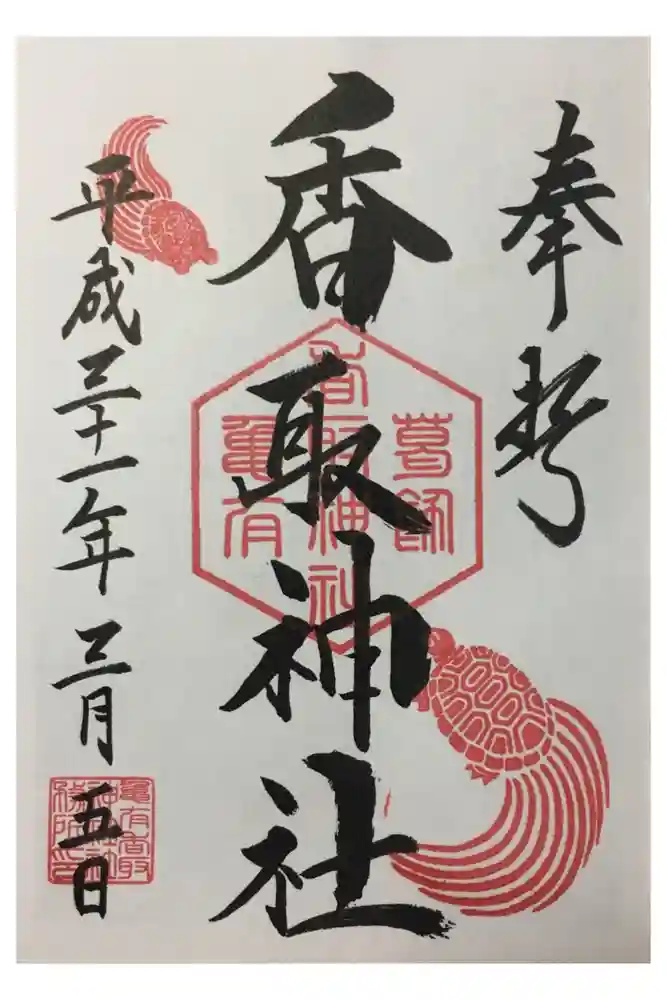 奉拝
香取神社
葛飾
香取神社
亀有
平成三十一年三月五日
亀有香取
神社社
務所印